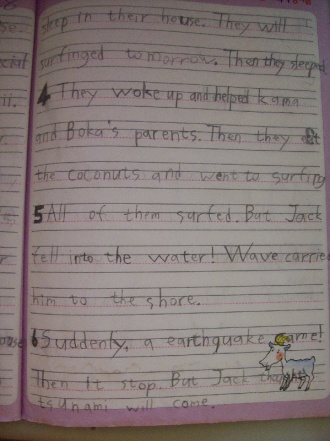 sleep in their house. They will
surfinged tomorrow. Then they sleeped
4 They woke up and helped kama
and Boka's parents. Then they
the coconuts and went to surfing
5 All of them surfed. But Jack
fell into the water! Wave carried
him to the shore.
6 Suddenly, a earthquake came!
Then it stop. But Jack thought
tsunami will come.